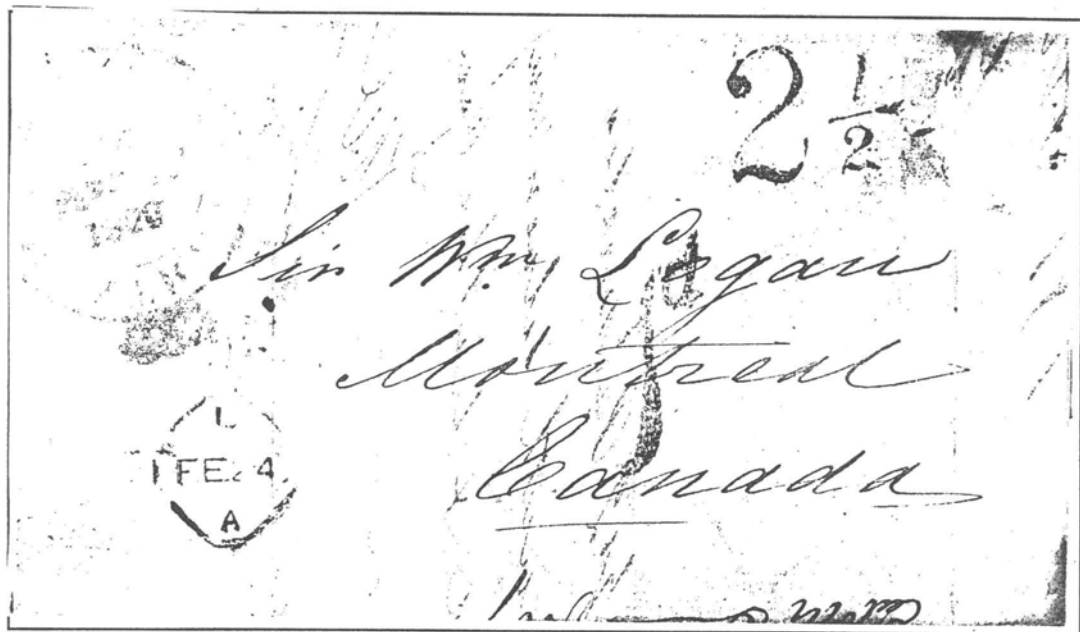 2 1/2
Sir Wm Logan
Montreal
Canada
L
1 FE 4
A